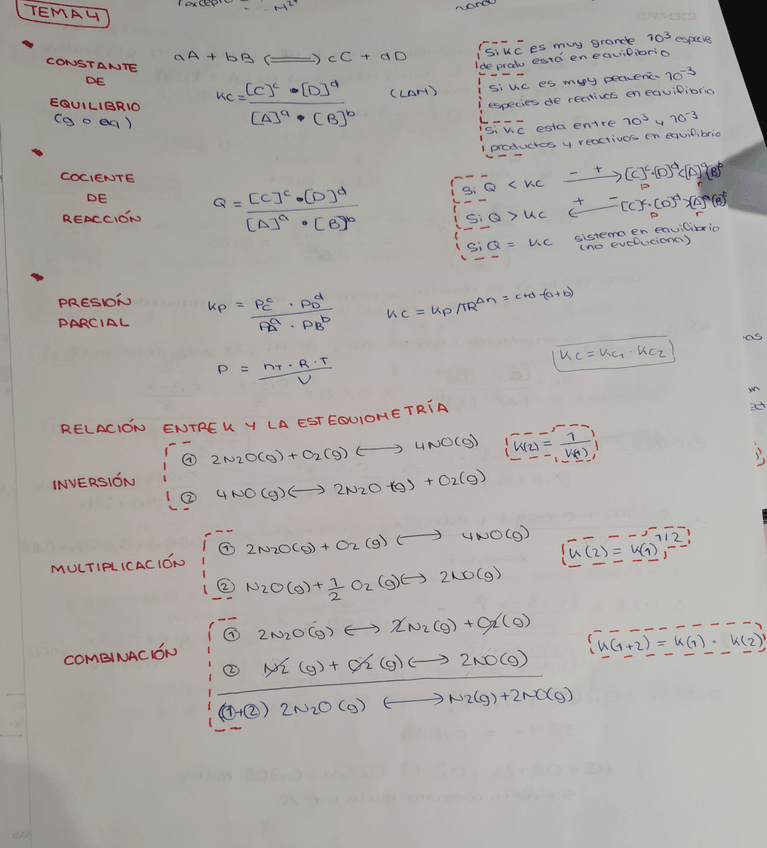 TEMA 4
CONSTANTE DE EQUILIBRIO (g o aq)
aA + bB ⇌ cC + dD
Kc = [C]^c • [D]^d / [A]^a • [B]^b (LAM)
Si Kc es muy grande 10^3 especies de produ está en equilibrio
si Kc es muy pequeña 10^-3 especies de reactivos en equilibrio
si Kc esta entre 10^3 y 10^-3 productos y reactivos en equilibrio
COCIENTE DE REACCIÓN
Q = [C]^c • [D]^d / [A]^a • [B]^b
Si Q < Kc - + → [C]^c·[D]^d < [A]^a [B]^b
p r
Si Q > Kc + - ← [C]^c·[D]^d > [A]^a [B]^b
p r
Si Q = Kc sistema en equilibrio (no evoluciona)
PRESIÓN PARCIAL
Kp = Pc^c · PD^d / PA^a · PB^b
Kc = Kp/TR^Δn = c+d-(a+b)
P = nT · R · T / V
Kc = Kc1 · Kc2
RELACIÓN ENTRE K Y LA ESTEQUIOMETRÍA
INVERSIÓN
① 2N2O(g) + O2(g) ⟷ 4NO(g)
② 4NO(g) ⟷ 2N2O (g) + O2(g)
K(2) = 1 / K(1)
MULTIPLICACIÓN
① 2N2O(g) + O2(g) ⟷ 4NO(g)
② N2O(g) + 1/2 O2(g) ⟷ 2NO(g)
K(2) = K(1)^1/2
COMBINACIÓN
① 2N2O(g) ⟷ 2N2(g) + O2(g)
② N2(g) + O2(g) ⟷ 2NO(g)
(①+②) 2N2O(g) ⟷ N2(g) + 2NO(g)
K(1+2) = K(1) · K(2)